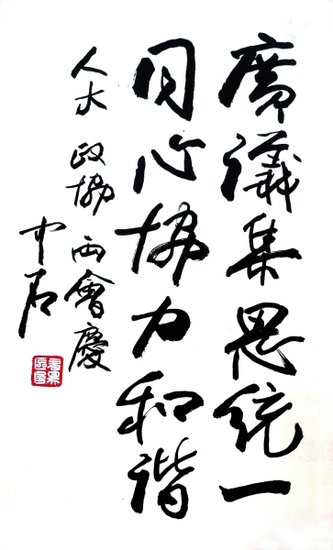 廣議集思統一
同心協力和諧
人大 政協 両會慶
中石